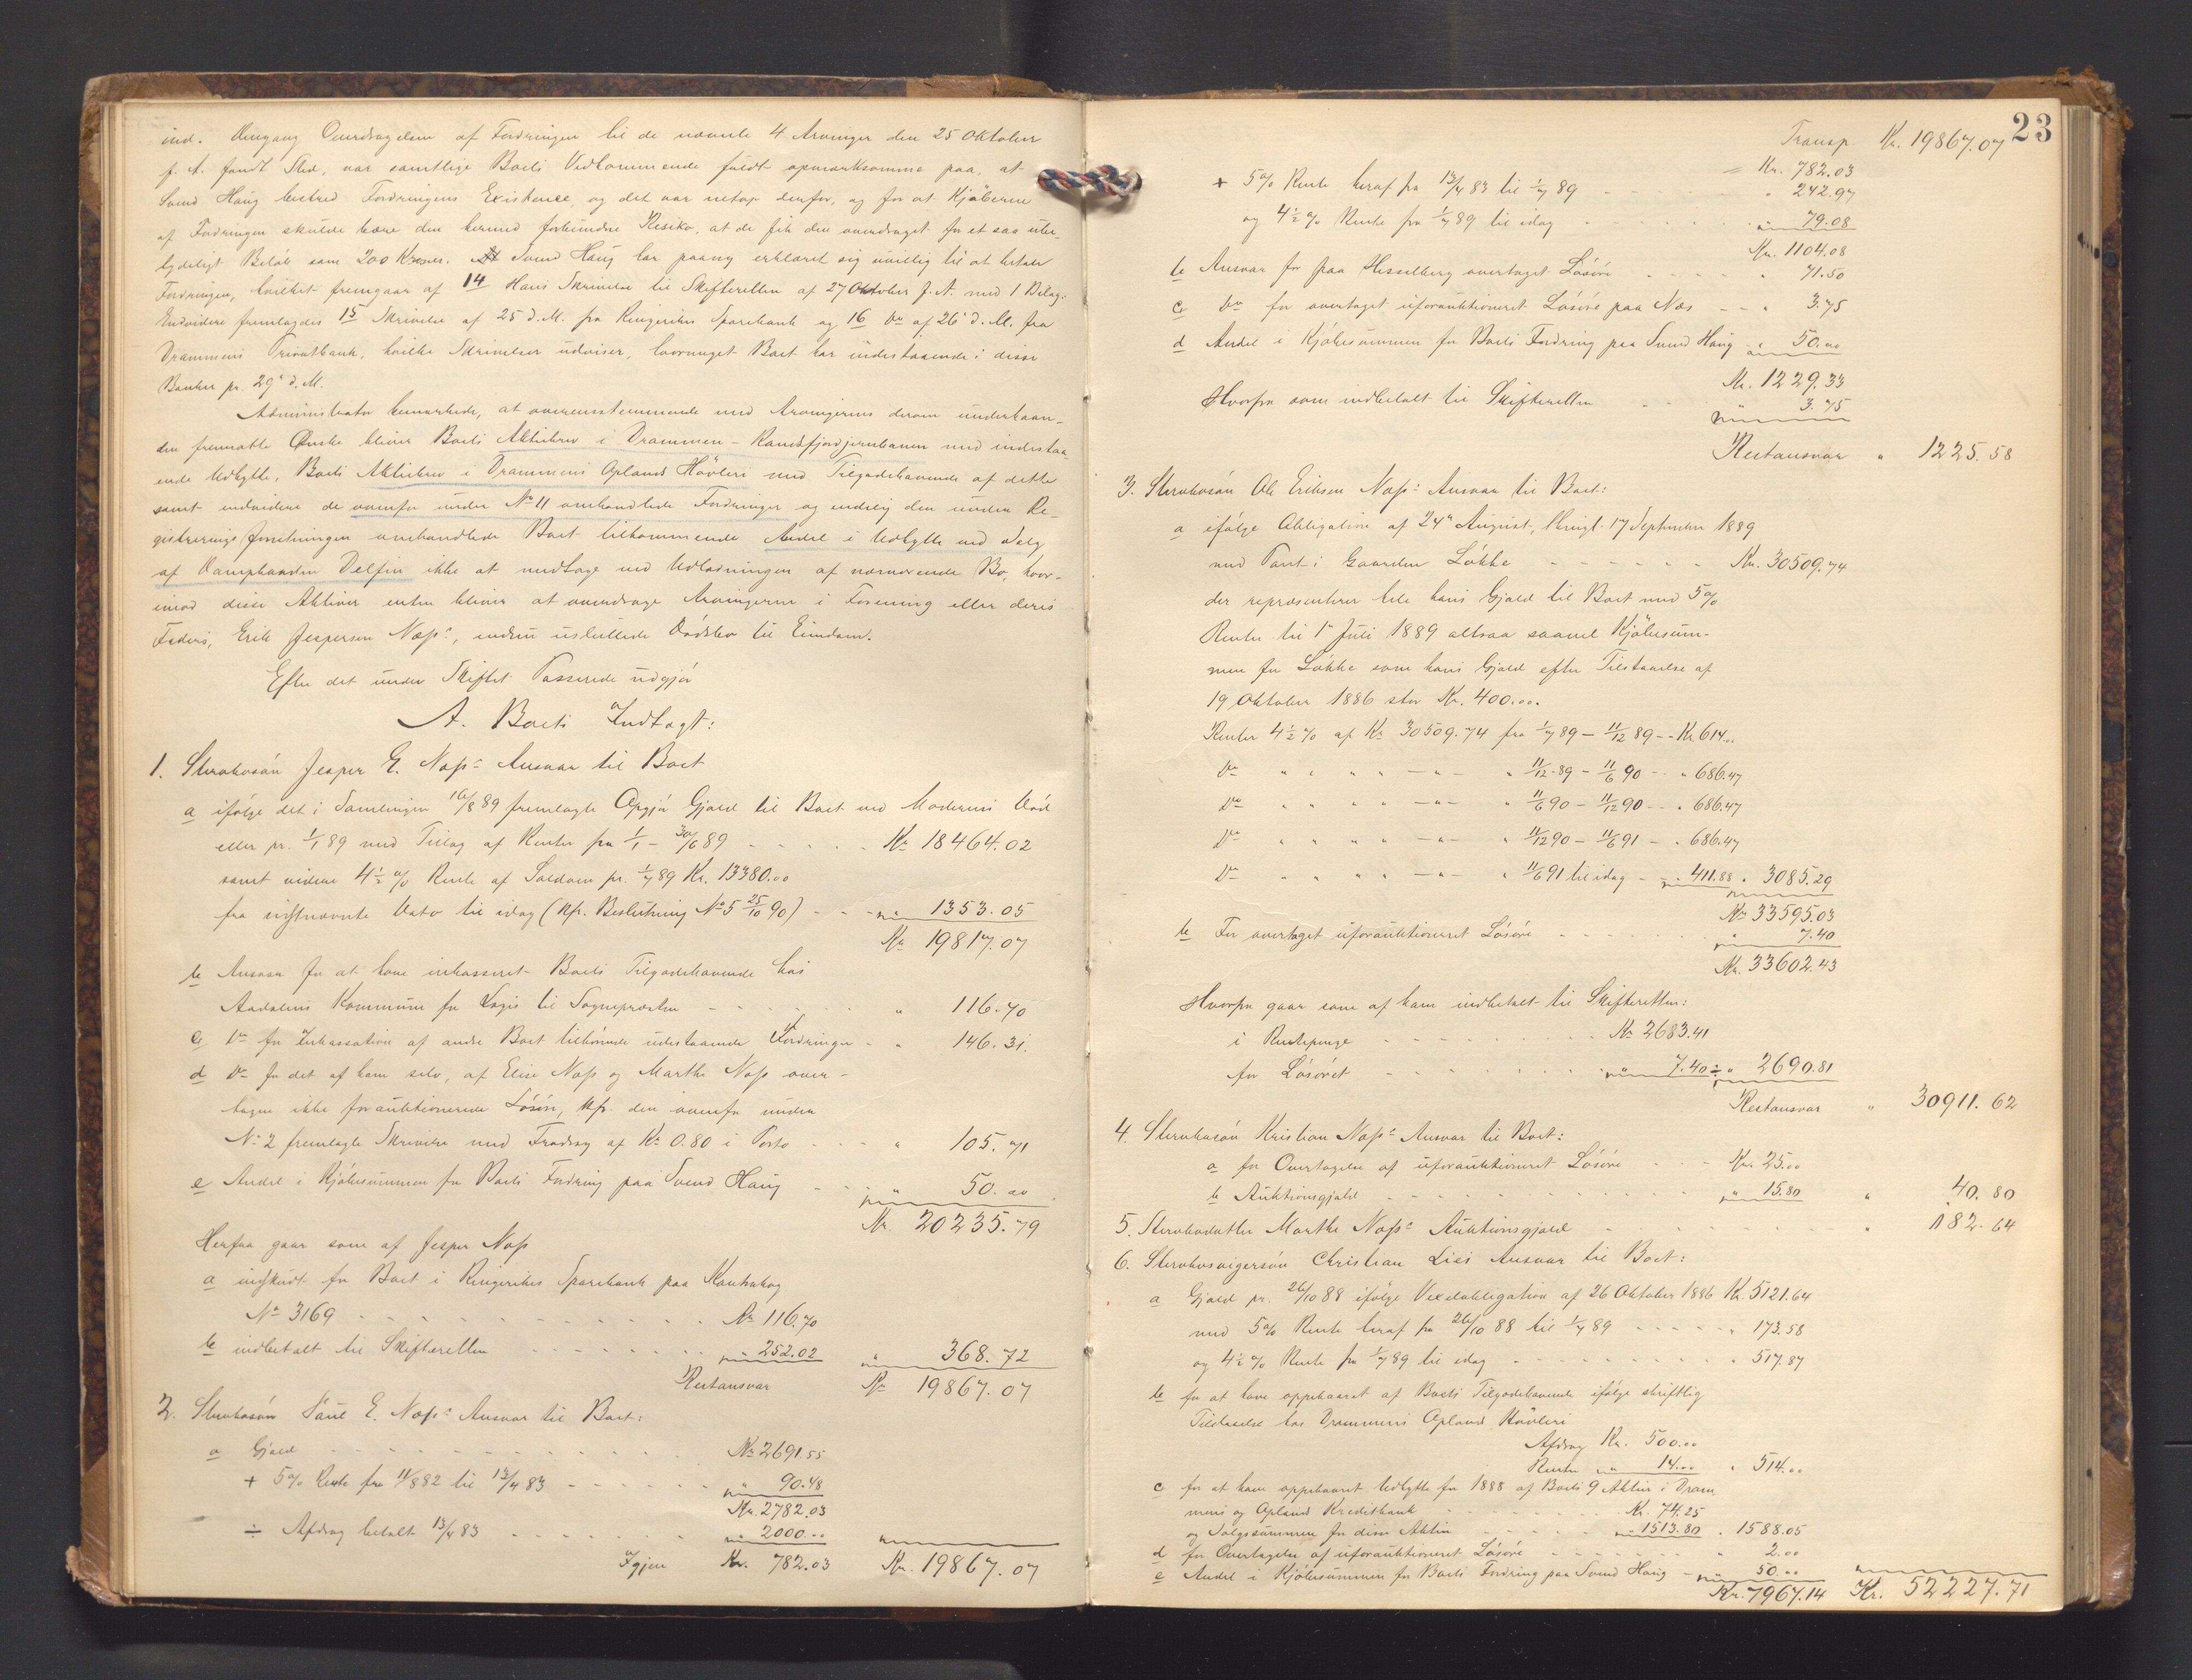 ind. Omgang Overdragelsen af Fordringen til de nævnte 4 Arvinger den 25 Oktober
f. A. fandt Sted, var samtlige Boets Vedkommende fuldt opmærksomme paa, at
Svend Haug bestred Fordringens Existence, og det var netop derfor, og for at Kjøberne
af Fordringen skulde bære den hermed forbundne Risiko, at de fik den overdraget for et saa ube-
tydeligt Beløb som 200 Kroner. Svend Haug har paany erklæret sig uvillig til at betale
Fordringen, hvilket fremgaar af 14 Hans Skrivelse til Skifteretten af 27 Oktober f. A. med 1 Bilag.
Endvidere fremlagdes 15 Skrivelse af 25 d. M. fra Ringerikes Sparebank og 16 Do af 26 d. M. fra
Drammens Privatbank, hvilke Skrivelser udviser, hvormeget Boet har indestaaende i disse
Banker pr. 29 d. M.
Administrator bemærkede, at overensstemmende med Arvingernes derom underhaan-
den fremsatte Ønske bliver Boets Aktiebrev i Drammen-Randsfjordjernbanen med indestaa-
ende Udbytte, Boets Aktiebrev i Drammens Oplands Høvleri med Tilgodehavende af dette
samt endvidere de ovenfor under No 11 omhandlede Fordringer og endelig den under Re-
gistreringsforretningen omhandlede Boet tilkommende Andel i Udbytte ved Salg
af Dampbaaden Delfin ikke at medtage ved Udlodningen af nærværende Bo, hvor-
imod disse Aktiver enten bliver at overdrage Arvingerne i Forening eller deres
Faders, Erik Jespersen Næs's, endnu usluttede Dødsbo til Eiendom.
Efter det under Skiftet Passerede udgjør
A. Boets Indtægt:
1. Stervbosøn Jesper E. Næs's Ansvar til Boet
a ifølge det i Samlingen 16/8 89 fremlagte Opgjør Gjæld til Boet ved Moderens Død
eller pr. 1/1 89 med Tillæg af Renter fra 1/1 - 30/6 89 - - - - - Kr 18464.02
samt videre 4 1/2 % Rente af Saldoen pr. 1/7 89 Kr. 13380.00
fra sidstnævnte Dato til idag (kfr. Beslutning No 5 25/10 90) - - - " 1353.05
Kr 19817.07
b Ansvar for at have inkasseret Boets Tilgodehavende hos
Aadalens Kommune for Logis til Sognepræsten - - - - - " 116.70
c Do for Inkassation af andre Boet tilhørende udestaaende Fordringer - " 146.31.
d Do for det af ham selv, af Elise Næs og Marthe Næs over-
tagne ikke forauktionerede Løsøre, kfr. den ovenfor under
No 2 fremlagte Skrivelse med Fradrag af Kr 0.80 i Porto - - - " 105.71
e Andel i Kjøbesummen for Boets Fordring paa Svend Haug - - " 50.00
Kr. 20235.79
Herfra gaar som af Jesper Næs
a indskudt for Boet i Ringerikes Sparebank paa Kontrabog
No 3169 - - - - - - - - - Kr 116.70
b indbetalt til Skifteretten - - - - - - - " 252.02 " 368.72
Restansvar Kr 19867.07
2. Stervbosøn Paul E. Næs's Ansvar til Boet:
a Gjæld - - - - - - - - - - Kr 2691.55
+ 5% Rente fra 11/8 82 til 13/4 83 - - - - - - " 90.48
Kr. 2782.03
÷ Afdrag betalt 13/4 83 - - - - - - - " 2000.00
Igjen Kr. 782.03 Kr. 19867.07
23
Transp. Kr. 19867.07
= Kr. 782.03
+ 5% Rente heraf fra 13/4 83 til 1/7 89 - - - " 242.97
og 4 1/2 % Rente fra 1/7 89 til idag - - - - - " 79.08
Kr. 1104.08
b Ansvar for paa Hesselberg overtaget Løsøre - - - - " 71.50
c Do for overtaget uforauktioneret Løsøre paa Næs - - " 3.75
d Andel i Kjøbesummen for Boets Fordring paa Svend Haug " 50.00
Kr. 1229.33
Hvorfra som indbetalt til Skifteretten - - " 3.75
Restansvar " 1225.58
3. Stervbosøn Ole Eriksen Næs's Ansvar til Boet:
a ifølge Obligation af 24de August, thingl. 17 September 1889
med Pant i Gaarden Løkke - - - - - - Kr. 30509.74
der repræsenterer hele hans Gjæld til Boet med 5%
Renter til 1ste Juli 1889 altsaa saavel Kjøbesum-
men for Løkke som hans Gjæld efter Tilstaaelse af
19 Oktober 1886 stor Kr. 400.00.
Renter 4 1/2 % af Kr 30509.74 fra 1/7 89 - 11/12 89 - - Kr 614.00
Do " " " " - " - " 11/12 89 - 11/6 90 - - " 686.47
Do " " " " - " - " 11/6 90 - 11/12 90 - - " 686.47
Do " " " " - " - " 11/12 90 - 11/6 91 - " 686.47
Do " " " " - " - " 11/6 91 til idag - " 411.88 " 3085.29
Kr 33595.03
b For overtaget uforauktioneret Løsøre - - - - - " 7.40
Kr. 33602.43
Hvorfra gaar som af ham indbetalt til Skifteretten:
i Rentepenge - - - - - - - - Kr 2683.41
for Løsøret - - - - - - - " 7.40 ÷ " 2690.81
Restansvar " 30911.62
4. Stervbosøn Kristian Næs's Ansvar til Boet:
a for Overtagelse af uforauktioneret Løsøre - - - Kr. 25.00
b Auktionsgjæld - - - - - - - - - " 15.80 " 40.80
5. Stervbodatter Marthe Næs's Auktionsgjæld - - - - - - - " 182.64
6. Stervbosvigersøn Christian Lies Ansvar til Boet:
a Gjæld pr. 26/10 88 ifølge Vexelobligation af 26 Oktober 1886 Kr. 5121.64
med 5% Rente heraf fra 26/10 88 til 1/7 89 - - - - - " 173.58
og 4 1/2 % Rente fra 1/7 89 til idag - - - - - - - " 517.87
b for at have oppebaaret af Boets Tilgodehavende ifølge skriftlig
Tilstaaelse hos Drammens Oplands Høvleri
Afdrag Kr. 500.00
Renter " 14.00 " 514.00
c for at have oppebaaret Udbytte for 1888 af Boets 9 Aktier i Dram-
mens og Oplands Kreditbank - - - - - - Kr. 74.25
og Salgssummen for disse Aktier - - - - - " 1513.80 " 1588.05
d for Overtagelse af uforauktioneret Løsøre - - - - - - " 2.00
e Andel i Kjøbesummen for Boets Fordring paa Svend Haug - " 50.00
Kr. 7967.14 Kr. 52227.71